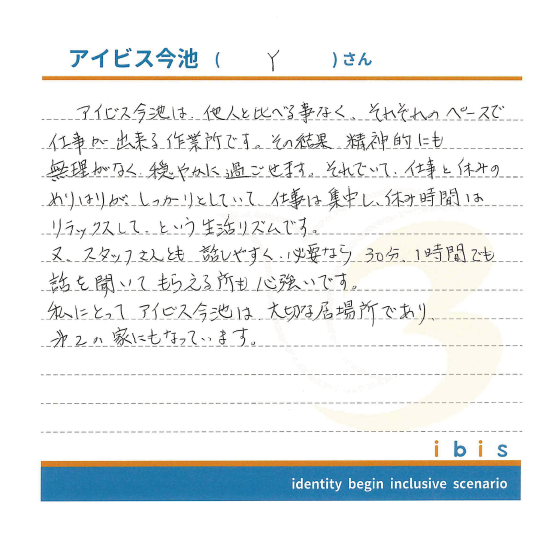 アイビス今池 ( Y )さん
アイビス今池は、他人と比べる事なく、それぞれのペースで
仕事が出来る作業所です。その結果、精神的にも
無理がなく、穏やかに過ごせます。それでいて、仕事と休みの
めりはりが、しっかりとしていて、仕事は集中し、休み時間は
リラックスして、という生活リズムです。
又、スタッフさんとも話しやすく、必要なら30分、1時間でも
話を聞いてもらえる所も心強いです。
私にとってアイビス今池は、大切な居場所であり、
第2の家にもなっています。
3
ibis
identity begin inclusive scenario